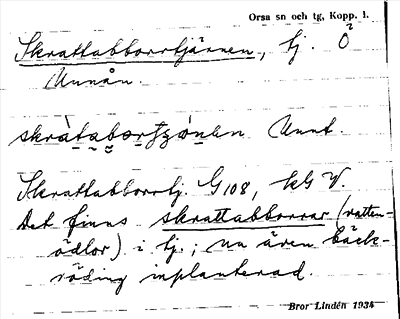 Orsa sn och tg, Kopp. l.
Skrattabborrtjärnen, tj. Ö
Unnån.
skràtabortjǫ́nen Unnt.
Skrattabborrtj. G 108, kG V.
Det finns skrattabborrar (vatten-
ödlor) i tj.; nu även bäck-
röding inplanterad.
Bror Lindén 1934